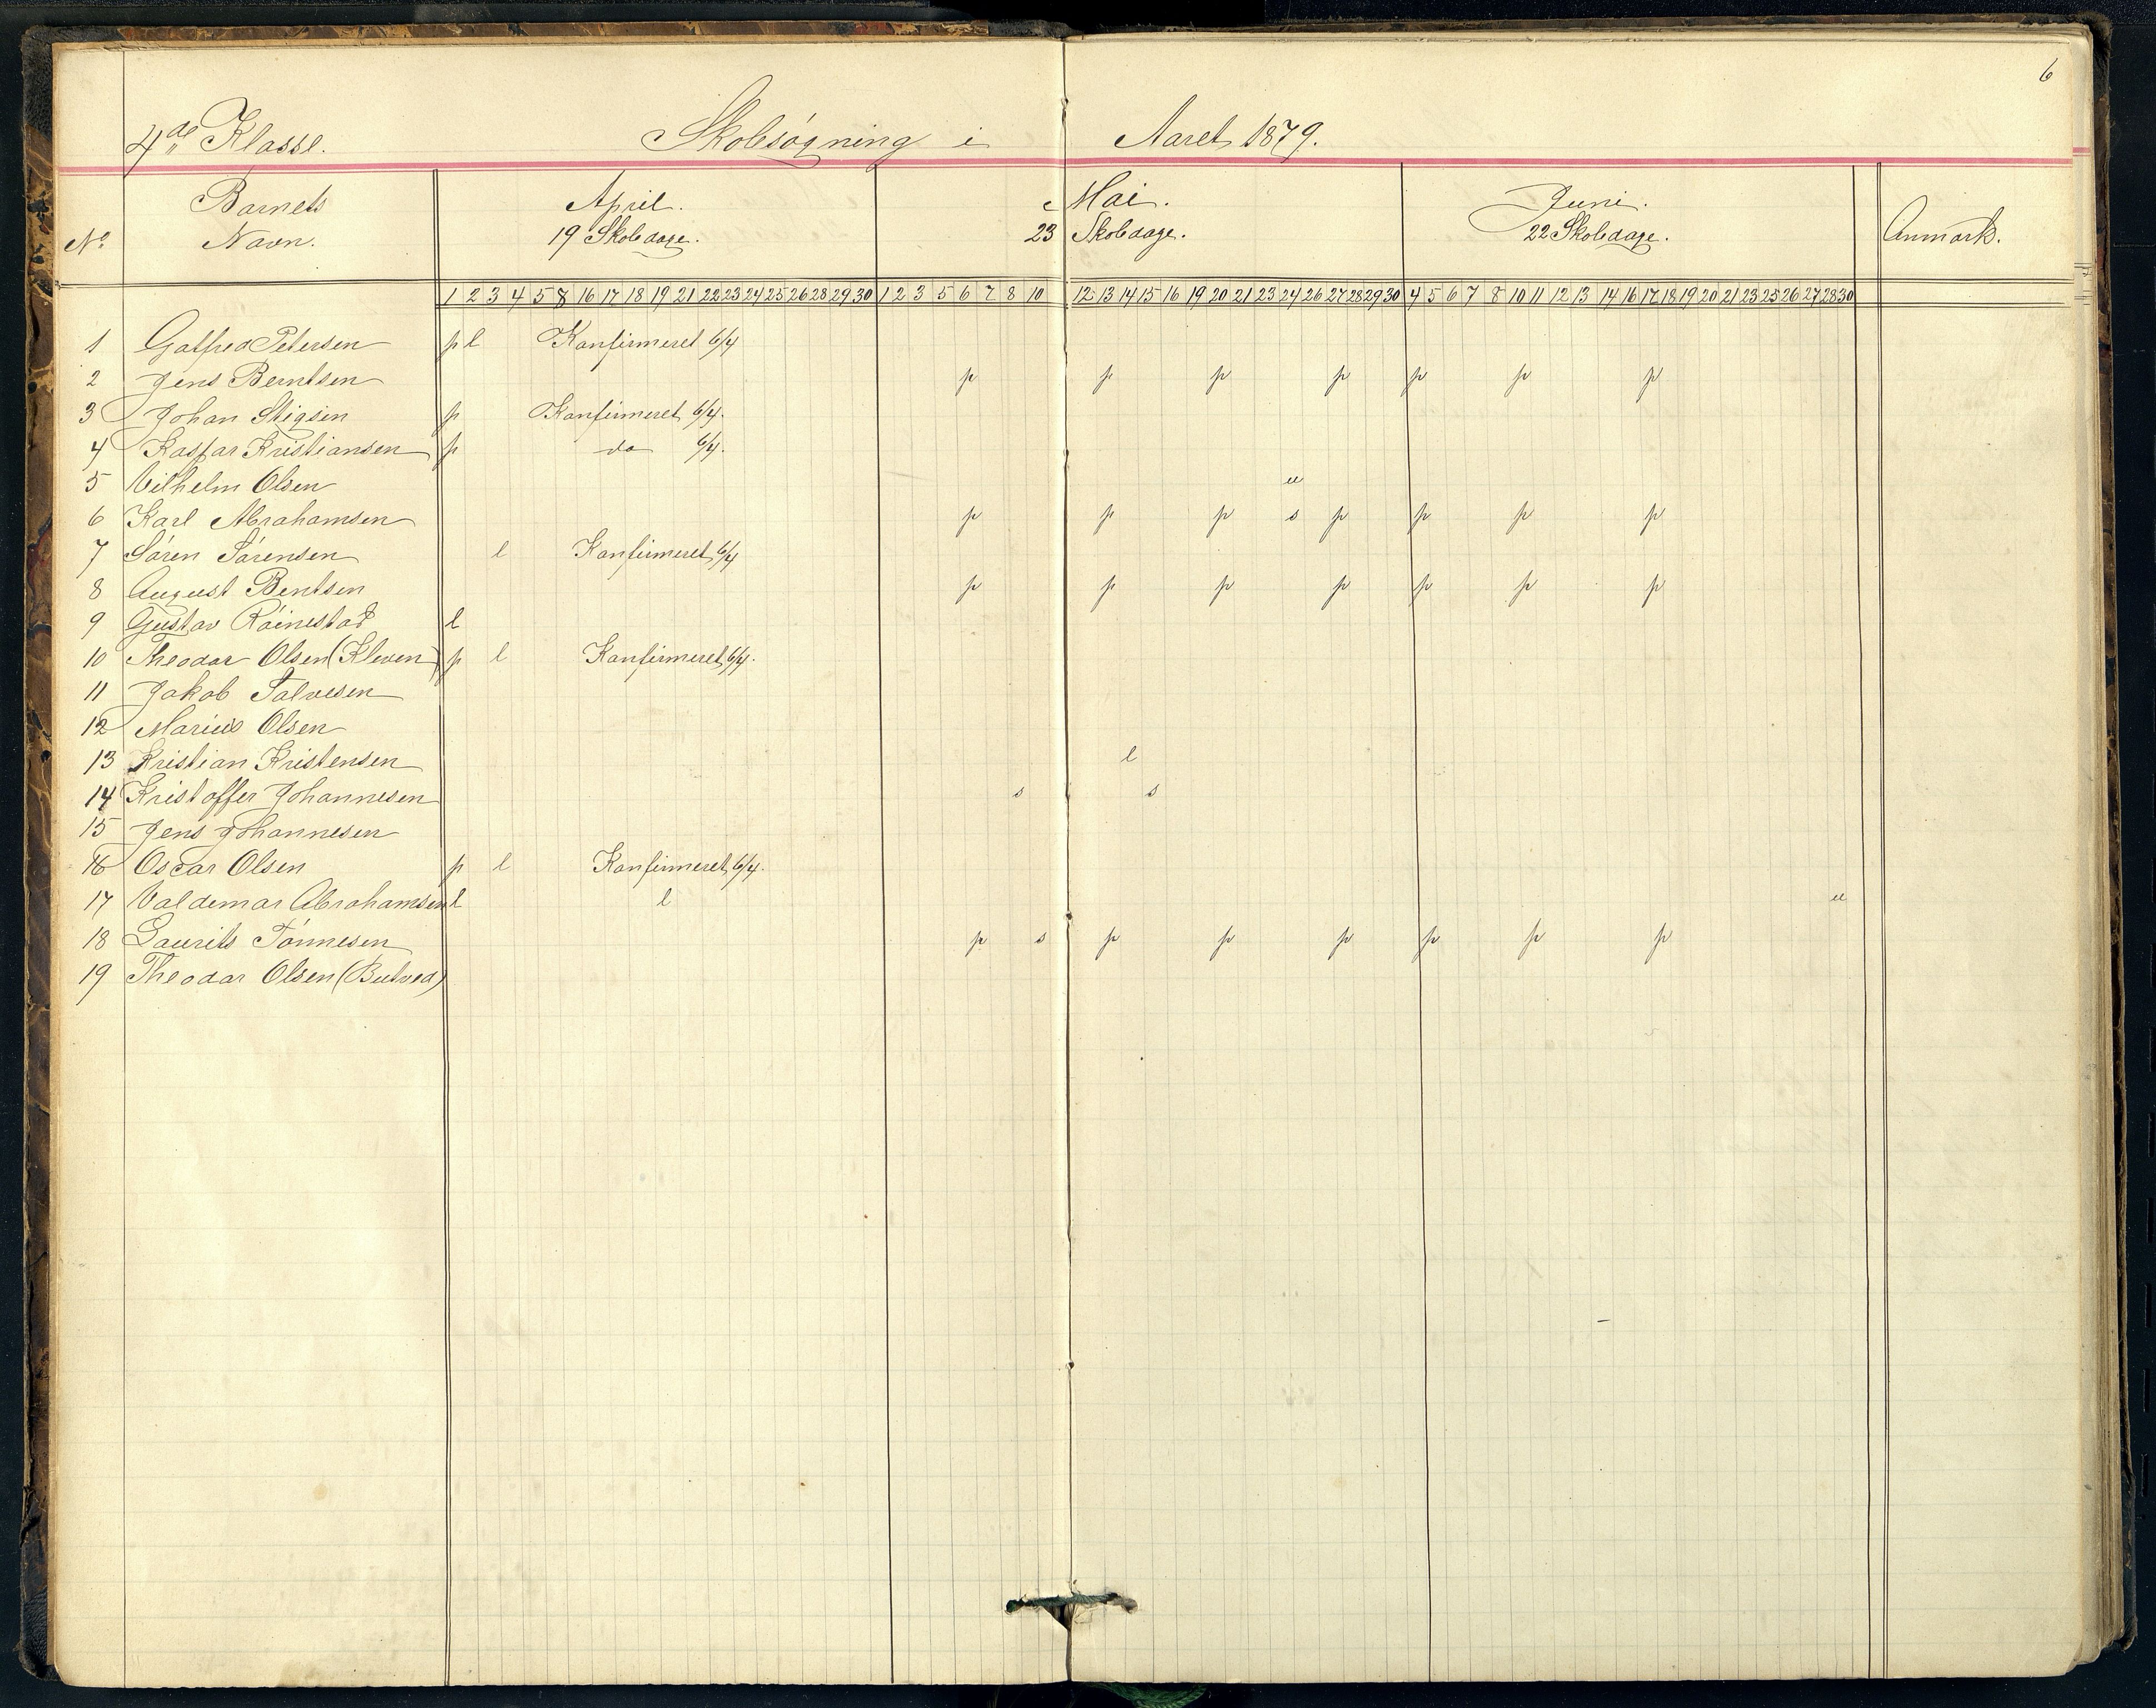 6
4de Klasse. Skolesøgning i Aaret 1879.
No Barnets Navn. April. 19 Skoledage. Mai. 23 Skoledage. Juni. 22 Skoledage. Anmærk.
1 2 3 4 5 8 16 17 18 19 21 22 23 24 25 26 28 29 30 1 2 3 5 6 7 8 10 12 13 14 15 16 19 20 21 23 24 26 27 28 29 30 4 5 6 7 8 10 11 12 13 14 16 17 18 19 20 21 23 25 26 27 28 30
1 Gotfred Petersen p l Konfirmeret 6/4
2 Jens Berntsen p p p p p p p
3 Johan Stigsen p Konfirmeret 6/4.
4 Kaspar Kristiansen p do 6/4.
5 Vilhelm Olsen u
6 Karl Abrahamsen p p p s p p p p
7 Søren Sørensen l Konfirmeret 6/4
8 August Bentsen p p p p p p p
9 Gustav Röinestad l
10 Theodor Olsen (Kleven) p l Konfirmeret 6/4.
11 Jakob Salvesen
12 Marius Olsen
13 Kristian Kristensen l
14 Kristoffer Johannesen s s
15 Jens Johannesen
16 Oscar Olsen p l Konfirmeret 6/4.
17 Valdemar Abrahamsen l l u
18 Laurits Tönnesen p s p p p p p p
19 Theodor Olsen